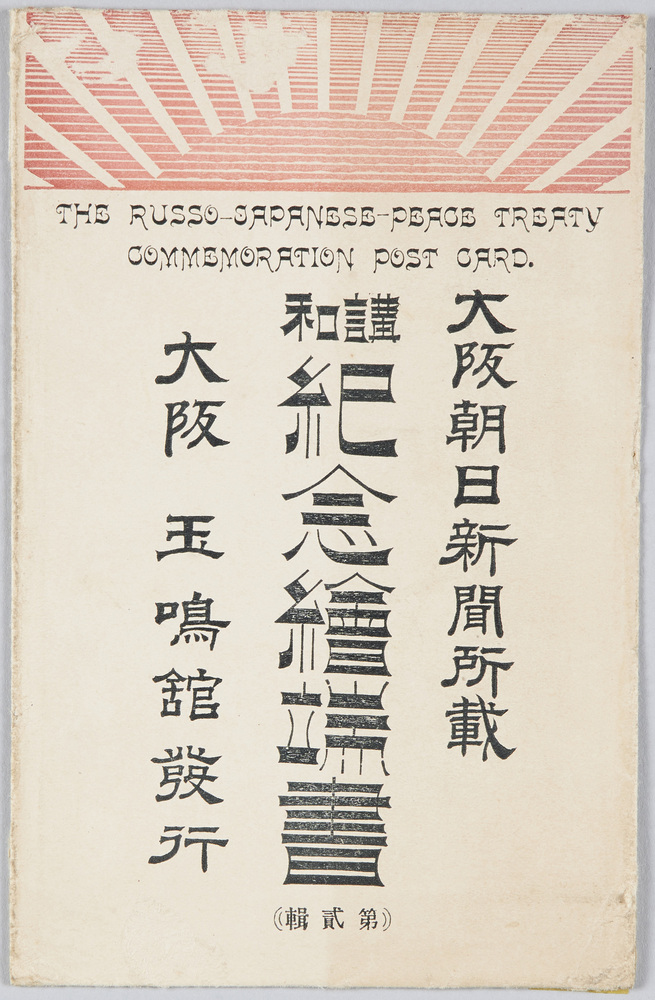 THE RUSSO-JAPANESE-PEACE TREATY
COMMEMORATION POST CARD.
大阪朝日新聞所載
講和
紀念繪端書
((第貳輯))
大阪 玉鳴舘發行